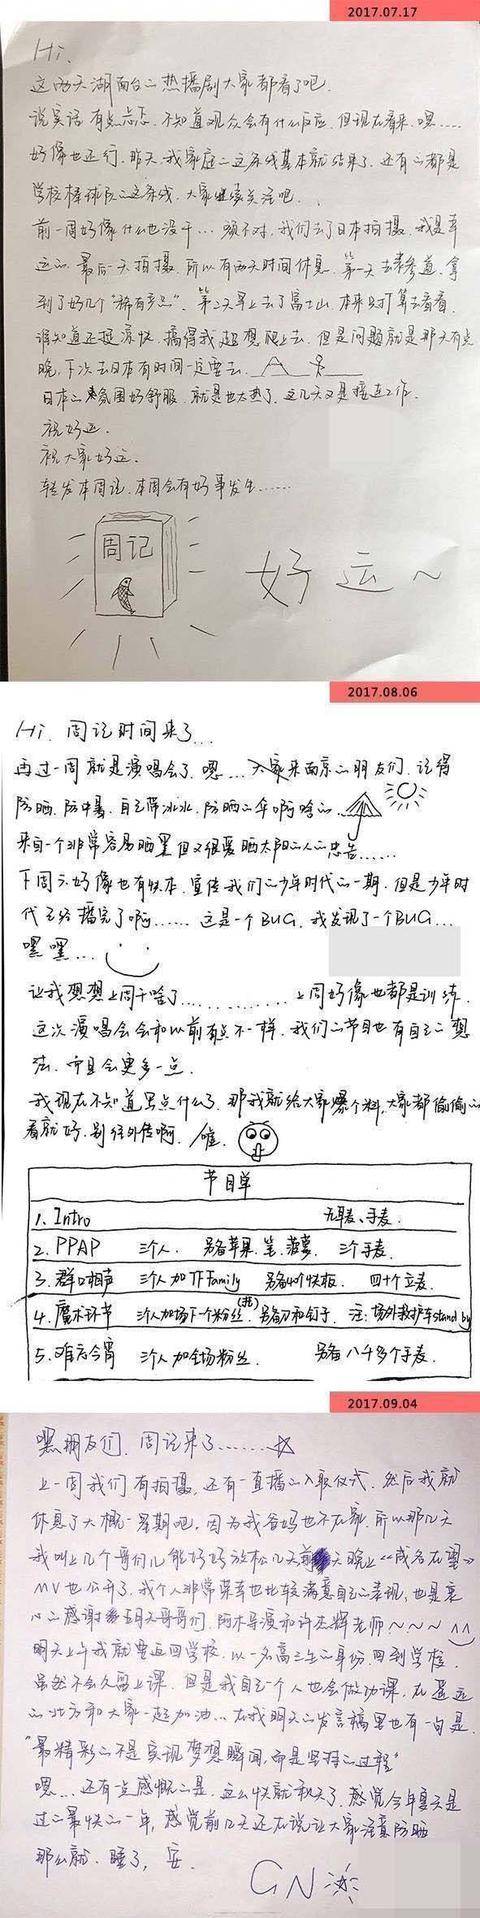 2017.07.17
Hi.
这两天湖南台の热播剧大家都看了吧.
说实话 有点忐忑. 不知道观众会有什么反应. 但现在看来. 嗯……
好像也还行. 昨天我家庭の这条线基本就结束了. 还有の都是
学校棒球队の这条线. 大家继续关注吧.
前一周好像什么也没干… 额不对. 我们去了日本拍摄. 我是幸
运の. 最后一天拍摄. 所以有两天时间休息. 第一天去表参道. 拿
到了好几个“稀有宝贝”. 第二天早上去了富士山. 本来只打算去看看.
谁知道还挺凉快. 搞得我超想爬上去. 但是问题就是那天有点
晚. 下次去日本有时间一定要去.
日本の氛围好舒服. 就是也太热了. 这几天又是接连工作.
祝好运.
祝大家好运.
转发本周记. 本周会有好事发生……
周记
好运~
2017.08.06
Hi. 周记时间来了…
再过一周就是演唱会了. 嗯… 来南京の朋友们. 记得
防晒. 防中暑. 自己带冰水. 防晒の伞啊啥の…
来自一个非常容易晒黑但又很爱晒太阳の人の忠告……
下周六好像也有快本. 宣传我们の少年时代の一期. 但是少年时
代已经播完了啊…… 这是一个BUG. 我发现了一个BUG…
嘿嘿…
让我想想上周干啥了………… 上周好像也都是训练.
这次演唱会会和以前有点不一样. 我们の节目也有自己の想
法. 而且会更多一点.
我现在不知道写点什么了. 那我就给大家爆个料. 大家都偷偷の
看就好. 别往外传啊. 嘘.
节目单
1. Intro 无耳麦、手麦.
2. PPAP 三个人. 另备苹果. 笔. 菠萝. 三个手麦.
3. 群口相声 三个人加TF Family 另备40个快板. 四十个立麦.
4. 魔术环节 三个人加场下一个粉丝(托). 另备刀和钉子. 注: 场外救护车stand by
5. 难忘今宵 三个人加全场粉丝. 另备八千多个手麦.
2017.09.04
嘿朋友们. 周记来了……☆
上一周我们有拍摄. 还有一直播の入取仪式. 然后我就
休息了大概一星期吧. 因为我爸妈也不在家. 所以那几天
我叫上几个哥们儿能好好放松几天 前天晚上《成名在望》
MV也公开了. 我个人非常荣幸也比较满意自己の表现. 也是衷
心の感谢五月天哥哥们. 阿木导演和许杰辉老师~~~~^^
明天上午我就要返回学校. 以一名高三生の身份. 回到学校.
虽然不会久留上课. 但是我自己一个人也会做功课. 在遥远
の北方和大家一起加油… 在我明天の发言稿里也有一句是.
“最精彩の不是实现梦想瞬间. 而是坚持の过程”
嗯… 还有点感慨の是. 这么快就秋天了. 感觉今年夏天是
过の最快の一年. 感觉前几天还在说让大家注意防晒
那么就. 睡了. 安.
GN